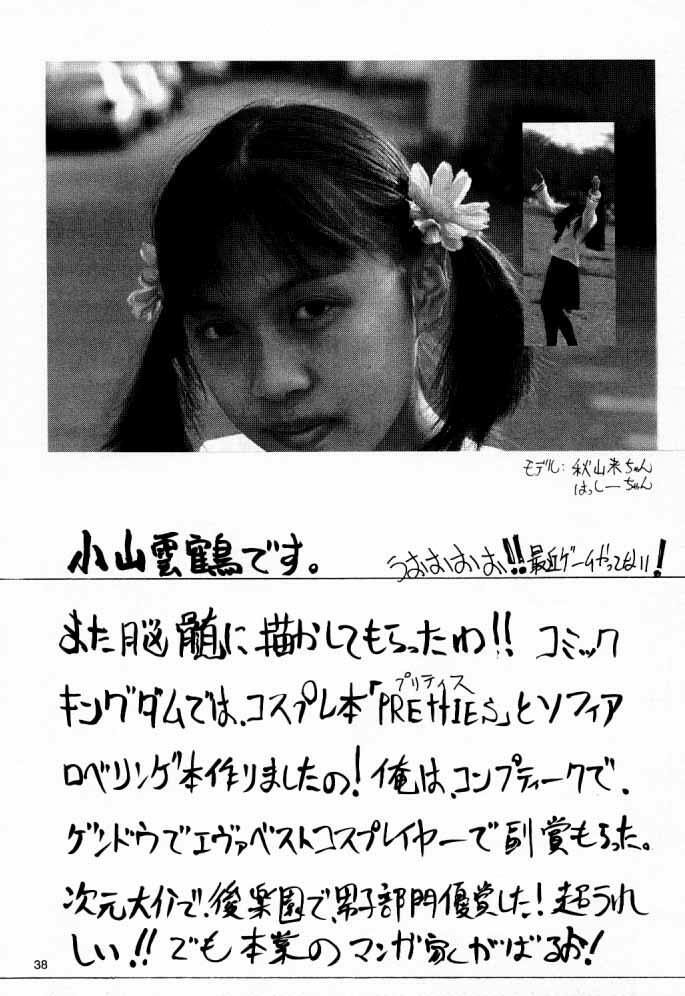 モデル: 秋山来ちゃん
はっしーちゃん
小山雲鶴です。
うおおおお!!最近ゲームやってない!
また脳髄に描かしてもらったわ!! コミック
キングダムでは、コスプレ本「PREttIES」とソフィア
プリティス
ロベリンゲ本作りましたの! 俺は、コンプティークで、
ゲンドウでエヴァベストコスプレイヤーで副賞もらった。
次元大介で、後楽園で、男子部門優賞した! 超うれ
しい!! でも本業のマンガ家くがばるお!
38